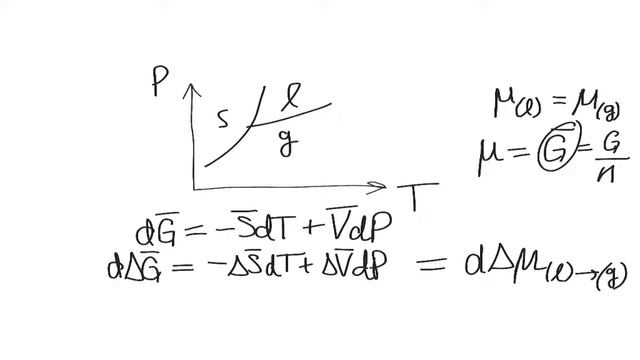 P
s
l
g
T
μ(l) = μ(g)
μ = G̅ = G/n
dG̅ = -S̅dT + V̅dP
dΔG̅ = -ΔS̅dT + ΔV̅dP = dΔμ(l)→(g)